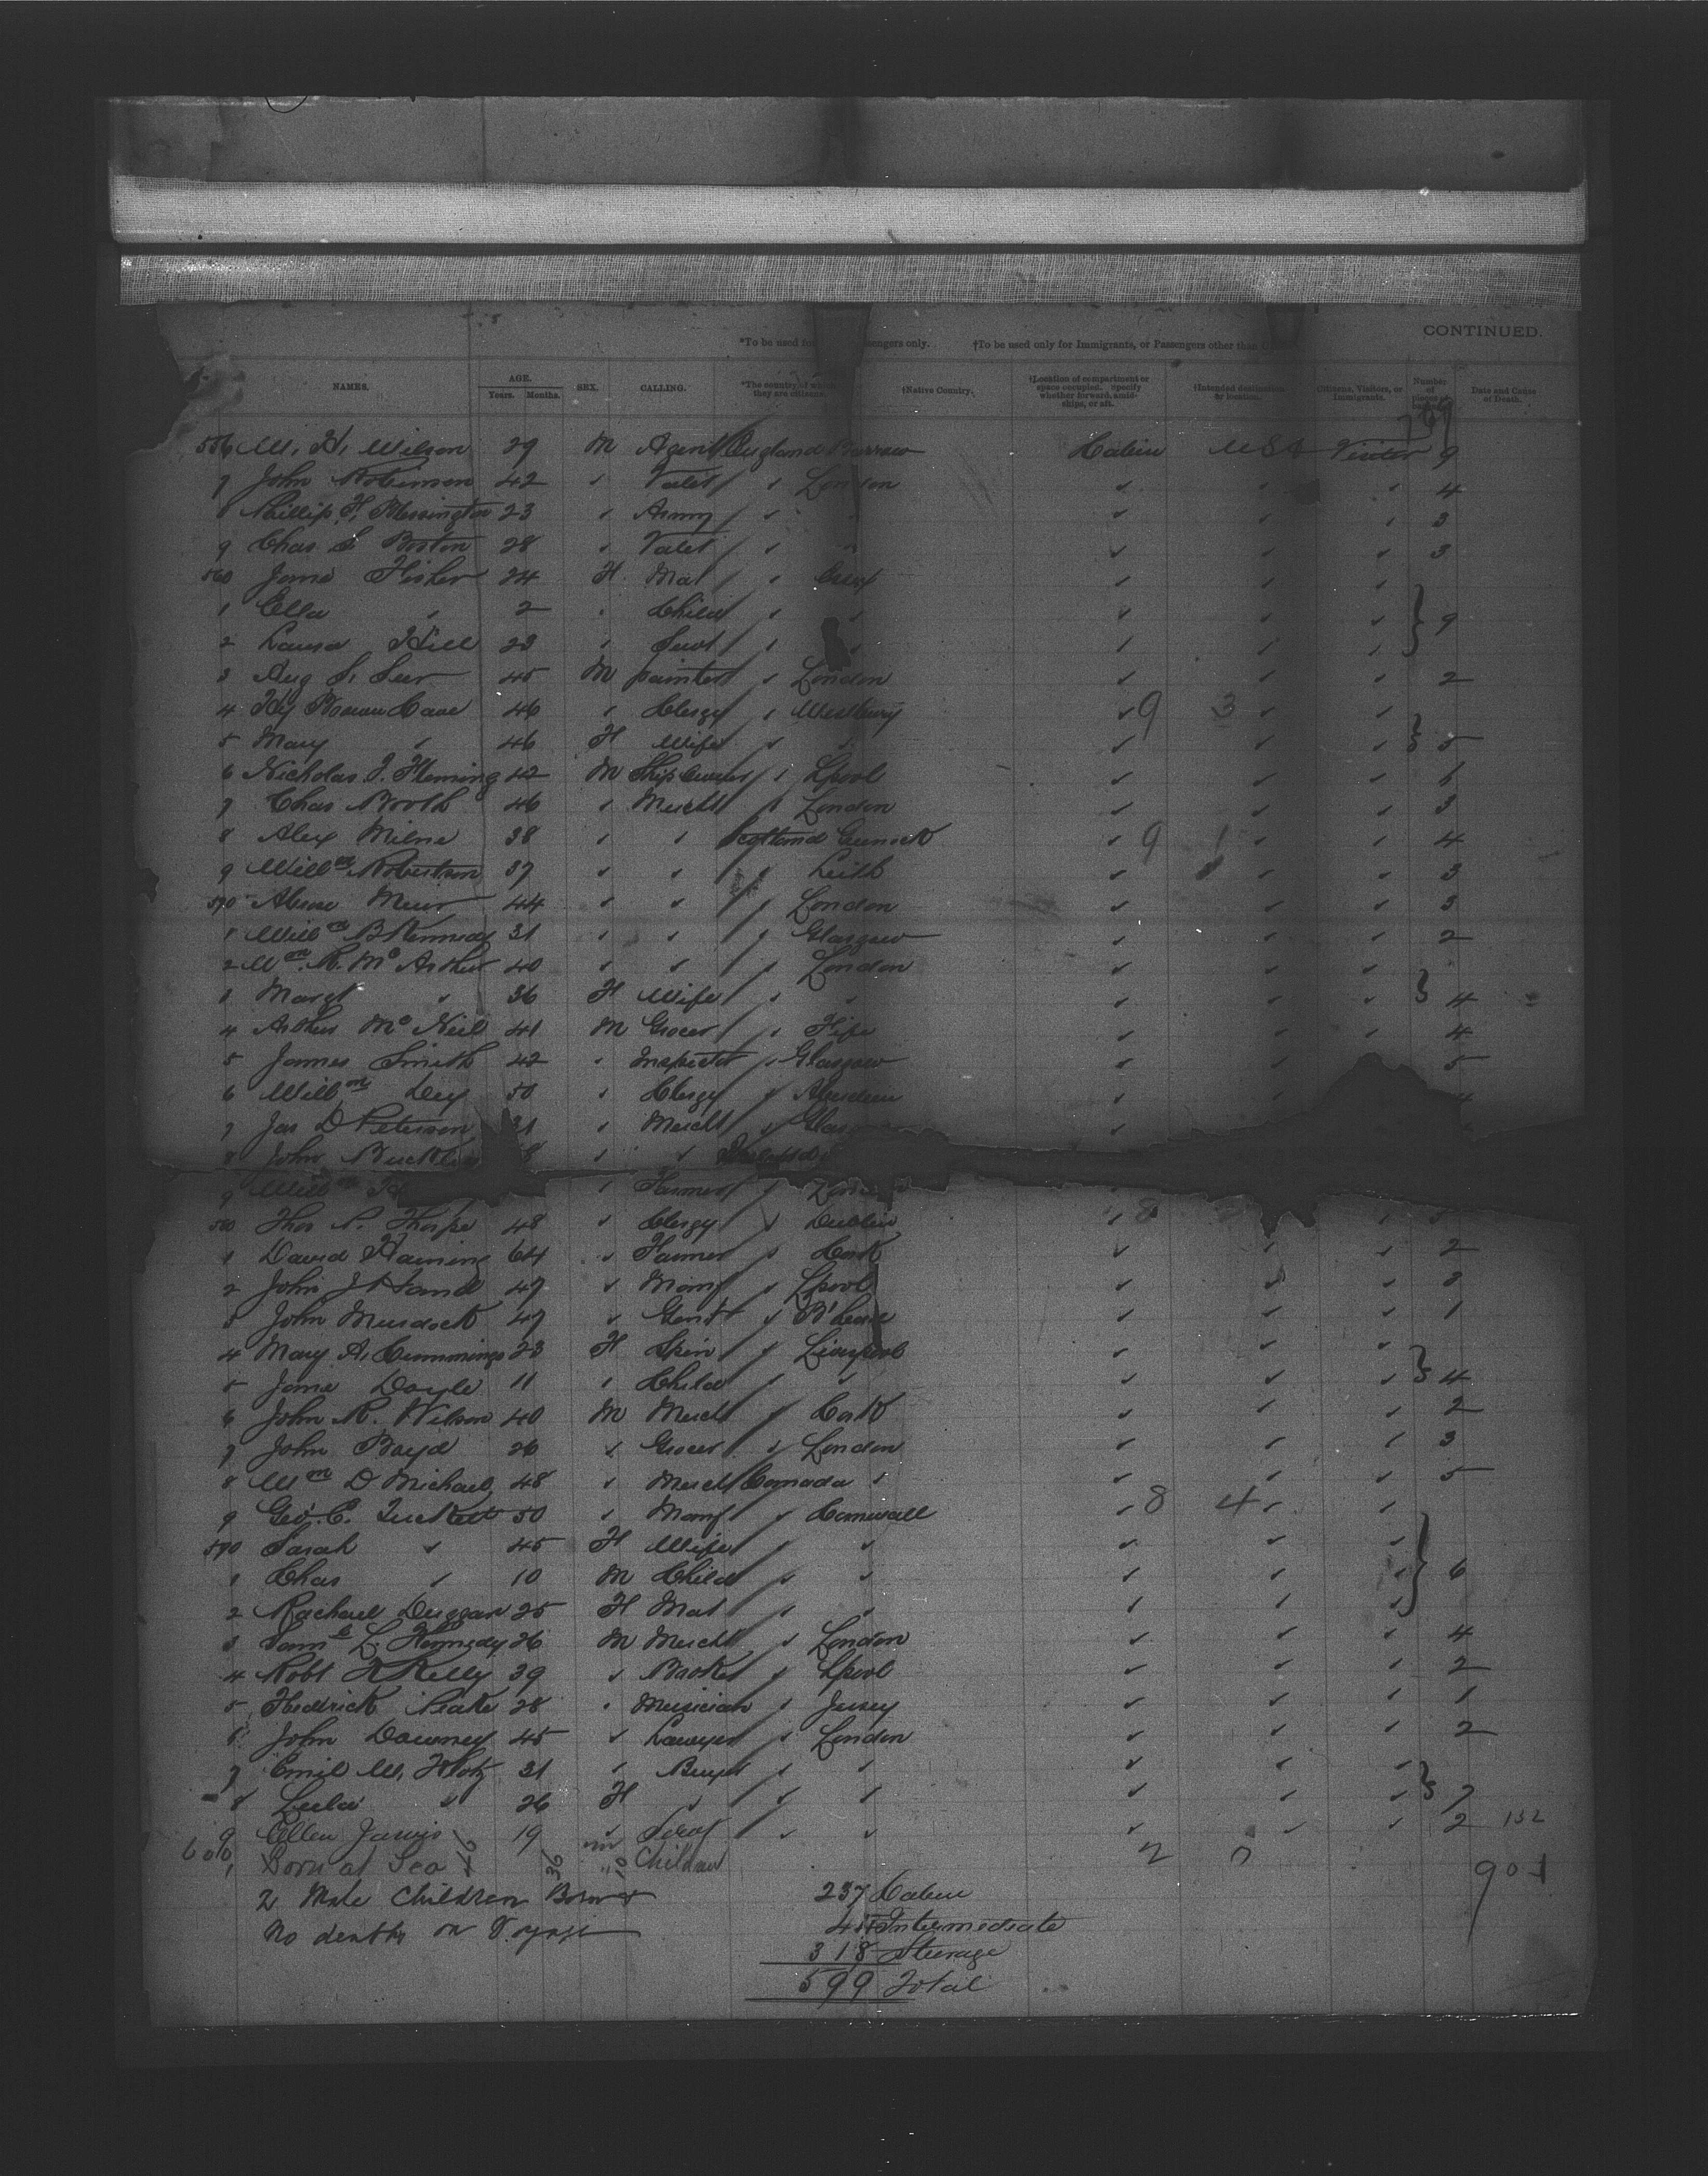 CONTINUED.
*To be used for passengers only. †To be used only for Immigrants, or Passengers other than
NAMES. AGE. Years. Months. SEX. CALLING. *The country of which they are citizens. †Native Country. †Location of compartment or space occupied. Specify whether forward, amidships, or aft. †Intended destination or location. Citizens, Visitors, or Immigrants. Number of pieces of Date and Cause of Death.
556 W. H. Wilson 29 M Agent England Barrow Cabin USA Visitor 9
7 John Robinson 42 " Valet " London " " " 4
8 Phillip H. Blessington 23 " Army " " " " " 3
9 Chas S Boston 28 " Valet " " " " " 3
560 Jane Fisher 24 F Mat " " " "
1 Ella " 2 " Child " " " " "
2 Laura Hill 23 " Servt " " " " " } 9
3 Aug S. 45 M painter " London " " " 2
4 Hy Cave 46 " Clergy " Westbury " 9 3 " "
5 Mary " 46 F Wife " " " " " } 5
6 Nicholas J. Fleming 42 M Ship Owner " Lpool " " " 6
7 Chas Booth 46 " Mercht " London " " " 3
8 Alex Milne 38 " " Scotland " 9 1 " " 4
9 Willm Robertson 37 " " " Leith " " " 3
570 Muir 44 " " " London " " " 3
1 Willm B Kennedy 31 " " " Glasgow " " " 2
2 Wm R. McArthur 40 " " " London " " "
3 Margt " 36 F Wife " " " " " } 4
4 Arthur McNeil 41 M Grocer " Fife " " " 4
5 James Smith 42 " Inspector " Glasgow " " 5
6 Willm Dey 50 " Clergy " Aberdeen " " 4
7 Jas D Peterson 31 " Mercht " "
8 John " "
9 Willm " Farmer "
580 Thos P. Thorpe 48 " Clergy " Dublin " 8 " 5
1 David Haining 64 " Farmer " Cork " " " 2
2 John J Hand 47 " Manf " Lpool " " " 3
3 John Murdock 47 " Gent " " " " 1
4 Mary A. Cummings 23 F Spin " Liverpool " " "
5 Jane Doyle 11 " Child " " " " " } 4
6 John R. Wilson 40 M Mercht " Cork " " " 2
7 John Boyd 26 " Grocer " London " " " 3
8 Wm D Michael 48 " Mercht Canada " " " " 5
9 Geo. E. Tuckett 50 " Manf " Cornwall " 8 4 " "
590 Sarah " 45 F Wife " " " " "
1 Chas " 10 M Child " " " " " } 6
2 Rachael Duggan 25 F Mat " " " " "
3 Saml L. Kennedy 26 M Mercht " London " " " 4
4 Robt H Kelly 39 " Broker " Lpool " " " 2
5 Fredrick Peake 28 " Musician " Jersey " " " 1
6 John Downey 45 " Lawyer " London " " " 2
7 Emil W. Klotz 31 " Buyer " " " " "
8 Leela " 26 F " " " " " " } 7
9 Ellen Jarvis 19 " Servt " " " " " 2 132
600 Born at Sea Children 2 0
1
2 Male Children Born 237 Cabin 901
No deaths on Voyage Intermediate
318 Steerage
599 Total